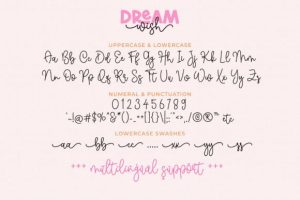 DREAM
wish
UPPERCASE & LOWERCASE
Aa Bb Cc Dd Ee Ff Gg Hh Ii Jj Kk Ll Mm
Nn Oo Pp Qq Rr Ss Tt Uu Vv Ww Xx Yy Zz
NUMERAL & PUNCTUATION
0123456789
etc
LOWERCASE SWASHES
aa bb cc ..... xx yy zz
+++ multilingual support +++